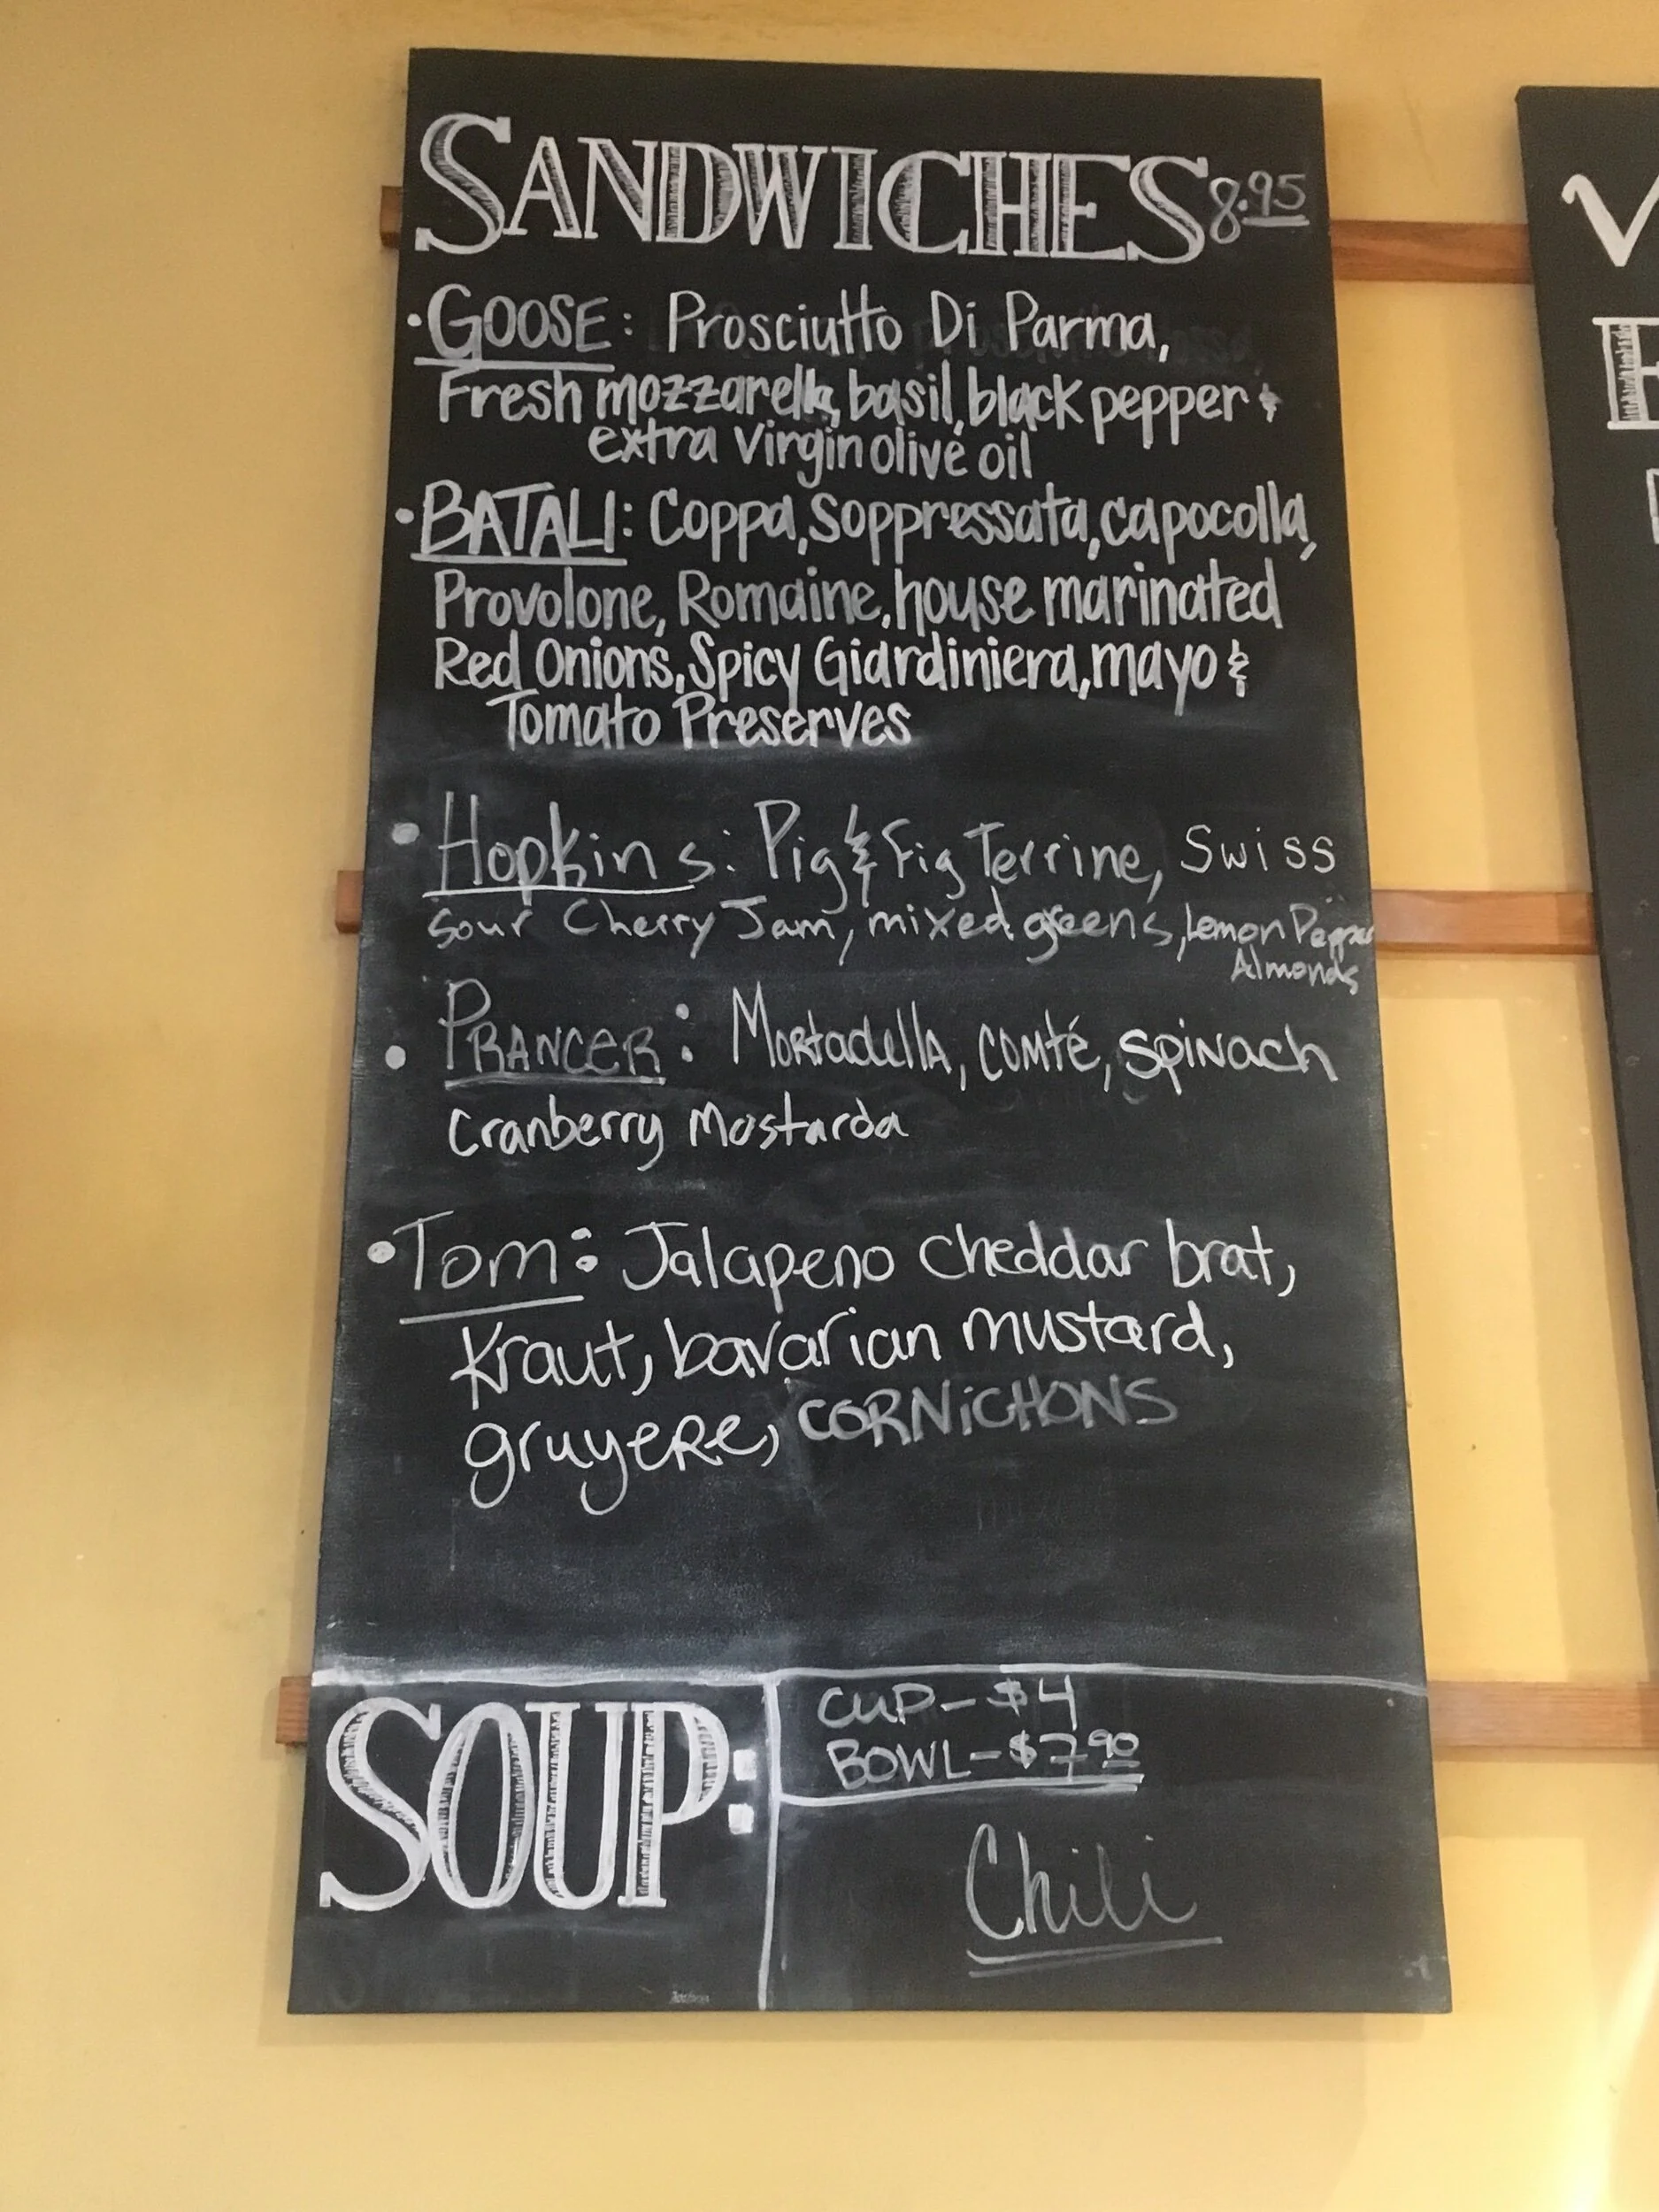 SANDWICHES 8.95
• GOOSE: Prosciutto Di Parma,
Fresh mozzarella, basil, black pepper &
extra virgin olive oil
• BATALI: Coppa, Soppressata, capocolla,
Provolone, Romaine, house marinated
Red Onions, Spicy Giardiniera, mayo &
Tomato Preserves
• Hopkins: Pig & Fig Terrine, Swiss
Sour Cherry Jam, mixed greens, Lemon Pepper
Almonds
• PRANCER: Mortadella, Comté, Spinach
Cranberry Mostarda
• Tom: Jalapeno cheddar brat,
Kraut, bavarian mustard,
gruyere, CORNiCHONS
SOUP:
CUP - $4
BOWL - $7.90
Chili